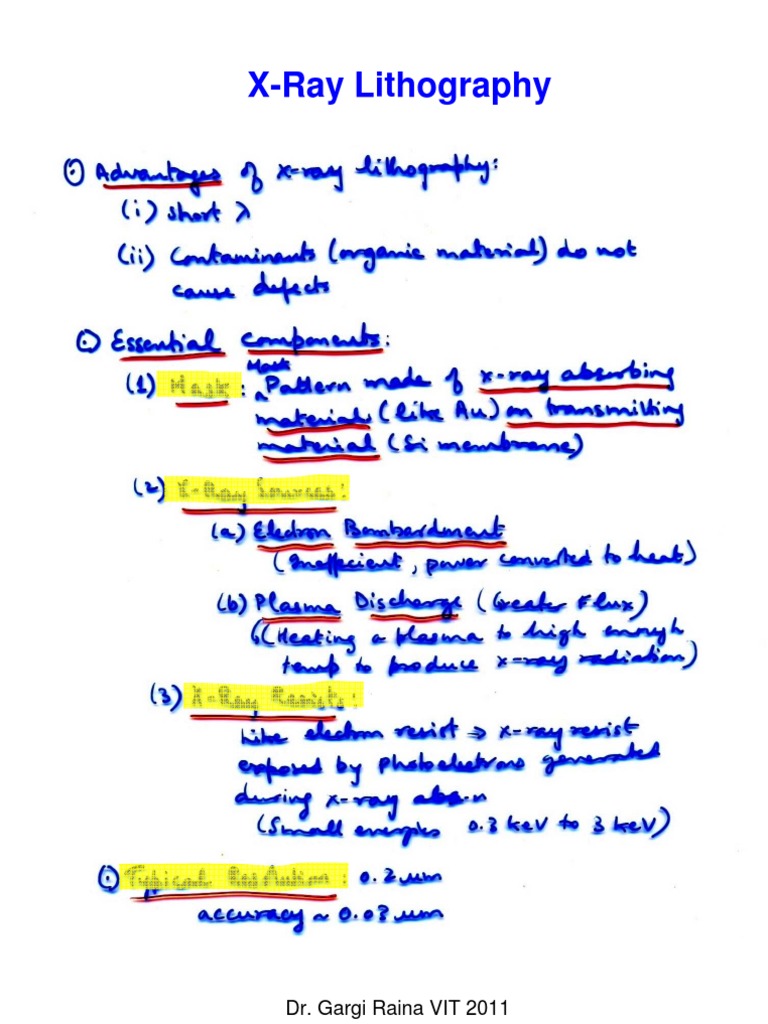 X-Ray Lithography
Advantages of x-ray lithography:
(i) short λ
(ii) Contaminants (organic material) do not
cause defects
Essential components:
Mask
(1) Mask : Pattern made of x-ray absorbing
material (like Au) on transmitting
material (Si membrane)
(2) X-Ray Sources:
(a) Electron Bombardment
(Inefficient, power converted to heat)
(b) Plasma Discharge (Greater Flux)
(Heating a plasma to high enough
temp to produce x-ray radiation)
(3) X-Ray Resists:
Like electron resist ⇒ x-ray resist
exposed by photoelectrons generated
during x-ray abs-n
(Small energies 0.3 keV to 3 keV)
Typical Resolution : 0.2 µm
accuracy ~ 0.03 µm
Dr. Gargi Raina VIT 2011